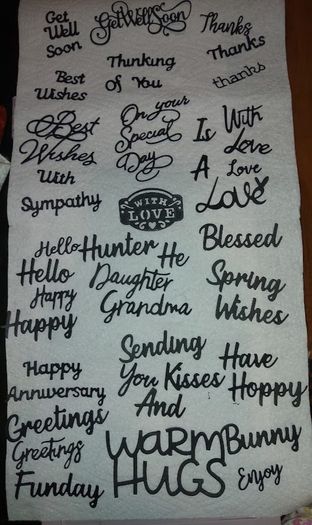 Get
Well
Soon
Get Well Soon
Thanks
Thanks
thanks
Thinking
of You
Best
Wishes
Best
Wishes
On your
Special
Day
Is
With
Love
A
Love
Love
With
Sympathy
WITH
LOVE
Blessed
Hello
Hunter
He
Hello
Daughter
Spring
Happy
Grandma
Wishes
Happy
Sending
You Kisses
And
Have
Hoppy
Happy
Anniversary
Greetings
Greetings
WARM
HUGS
Bunny
Enjoy
Funday